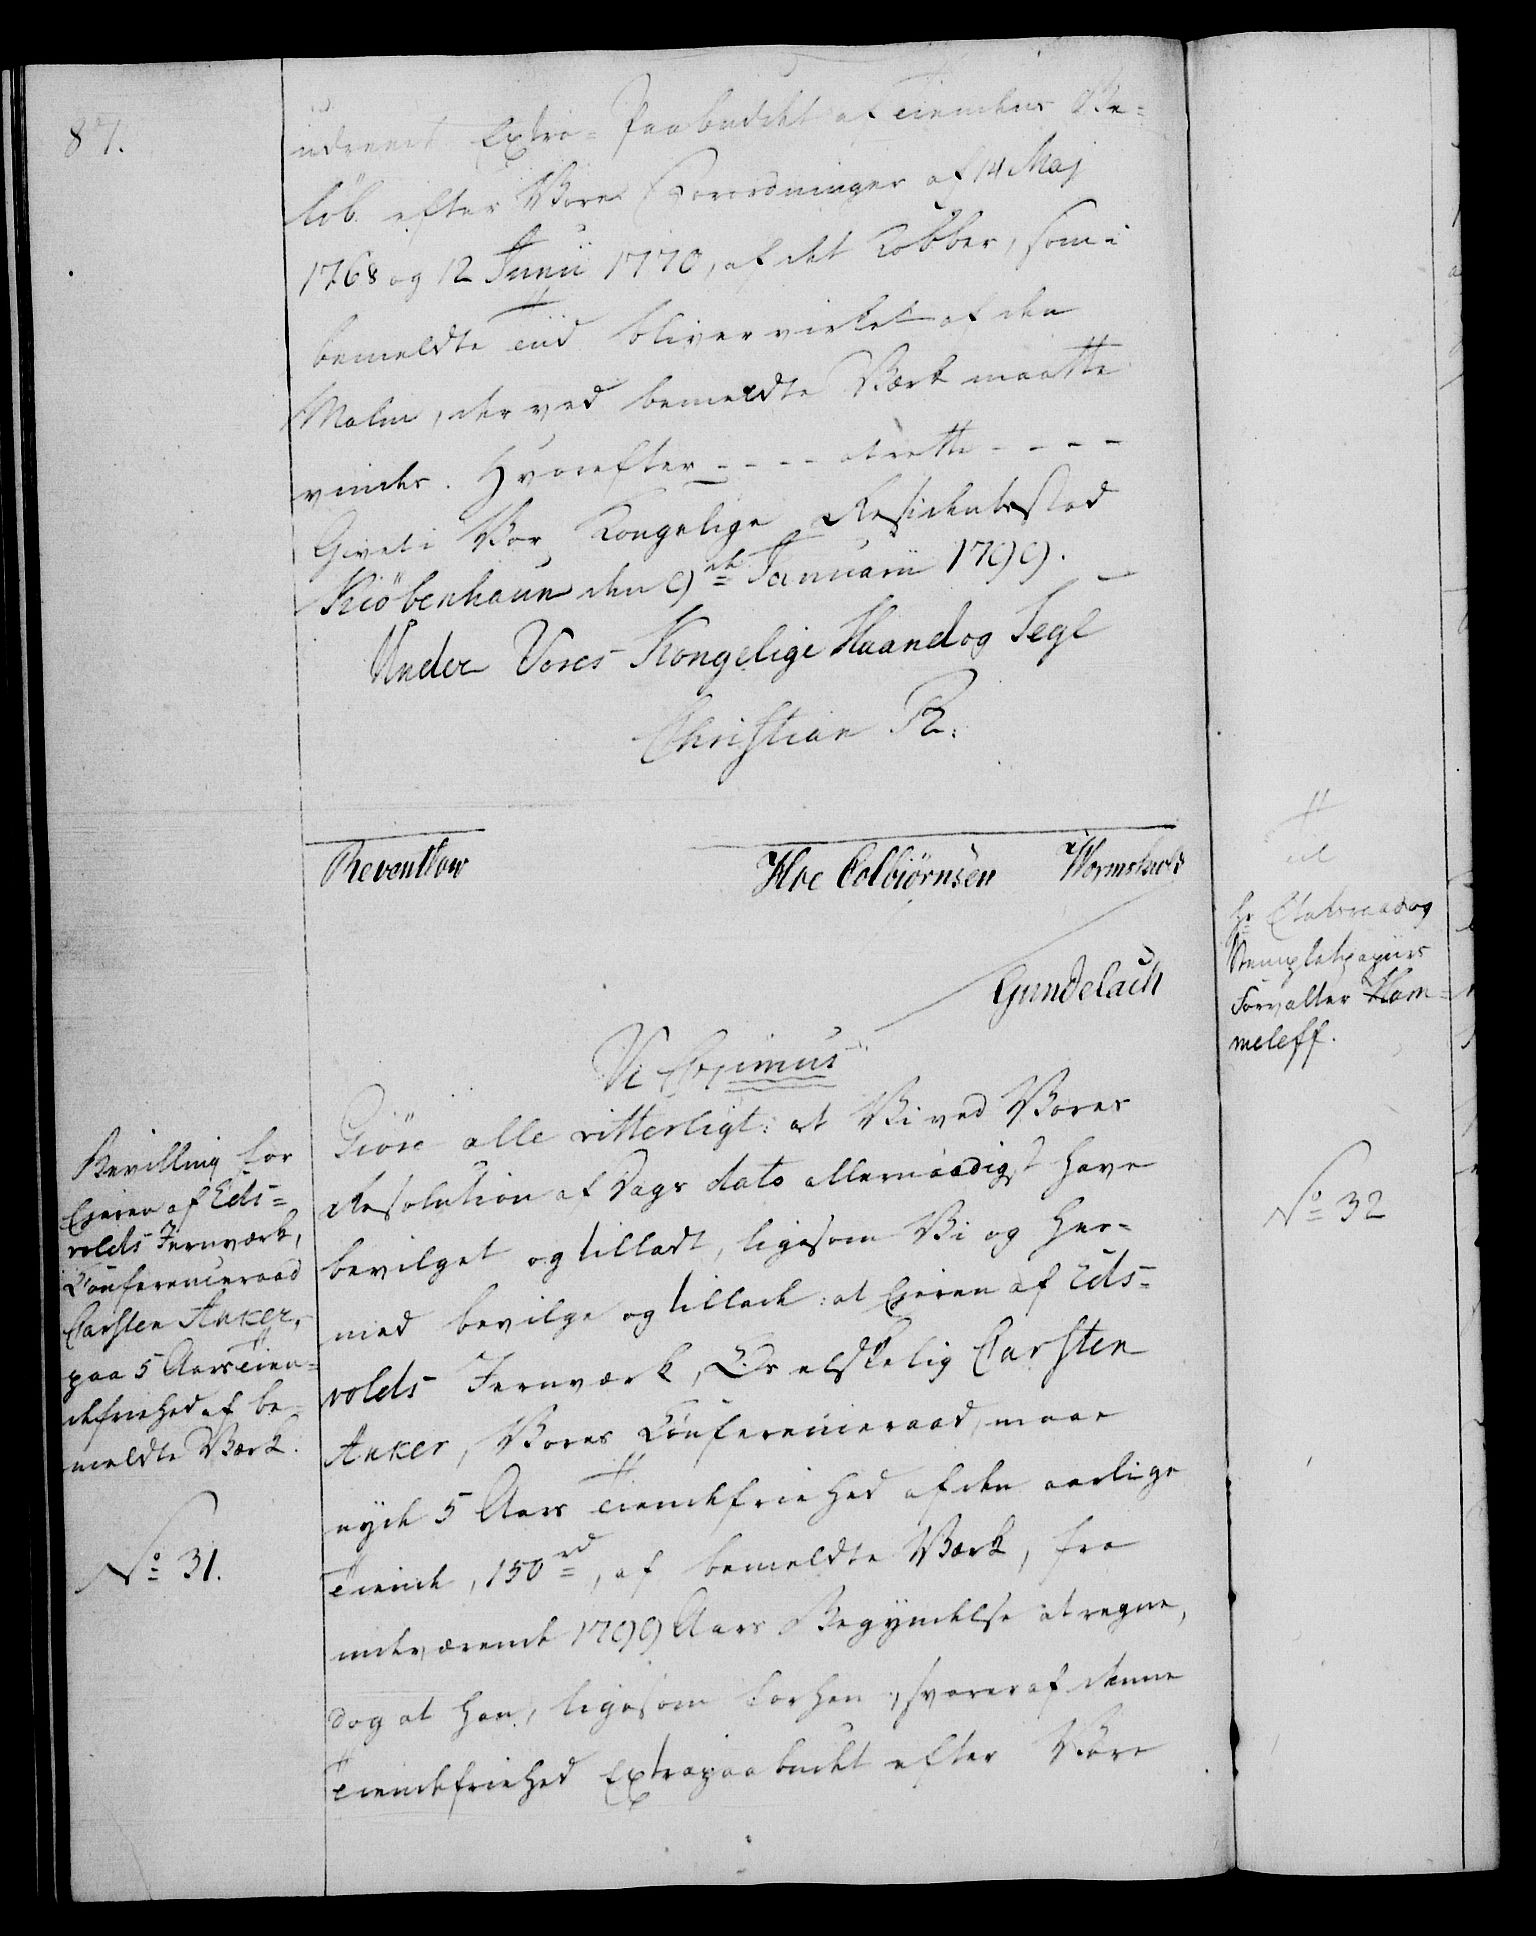 87.
udreede Extra-Paabudet af Tiendens Be-
löb efter Vore Forordninger af 14 Maj
1768 og 12 Junii 1770, af det Kobber, som i
bemeldte Tiid bliver virket af den
Malm, der ved bemeldte Værk maatte
vindes. Hvorefter - - - - at rette - - - -
Givet i Vor Kongelige Residentzstad
Kiöbenhaun den 9de Januarii 1799.
Under Vores Kongelige Haand og Segl
Christian R.
Reventlow
Hoe Colbiörnsen Wormskiold
Gundelach
Vi C. 7mus
Giöre alle vitterligt: at Vi ved Vores
Resolution af Dags dato allernaadigst have
bevilget og tilladt, ligesom Vi og her-
med bevilge og tillade: at Eieren af Eds-
volds Jernværk, Os elskelig Carsten
Anker, Vores Conferenceraad, maae
nyde 5 Aars Tiendefriehed af den aarlige
Tiende, 150 rd, af bemeldte Værk, fra
indeværende 1799 Aars Begyndelse at regne,
dog at han, ligesom forhen, svarer af denne
Tiendefriehed Extrapaabudet efter Vore
Bevilling for
Eieren af Eds-
volds Jernværk,
Conferenceraad
Carsten Anker,
paa 5 Aars Tien-
defriehed af be-
meldte Værk.
No 31.
Til
Hr Etatsraad og
Stempletpapiirs
Forvalter Ham-
meleff.
No 32